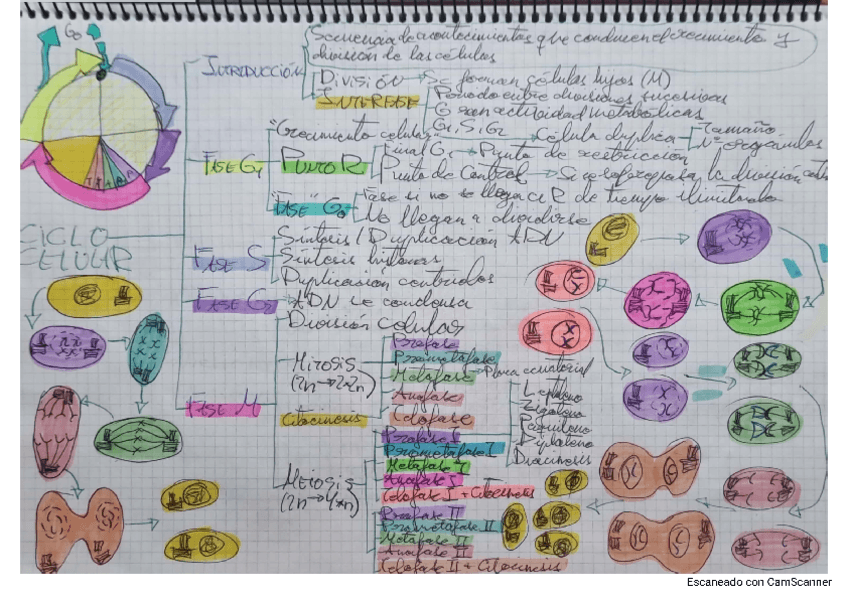 G₀
Secuencia de acontecimientos que conducen el crecimiento y
división de las células
INTRODUCCIÓN
División → Se forman células hijas (M)
INTERFASE
Periodo entre divisiones sucesivas
G son actividad metabólicas
G₁, S, G₂ → Célula duplica
Tamaño
Nº orgánulos
FASE G₁
"Crecimiento celular"
PUNTO R
Final G₁ → Punto de restricción
Punto de Control → Si se sobrepasa la división
"FASE" G₀
Fase si no se llega a R de tiempo ilimitado
No llegan a dividirse
CICLO
CELULAR
FASE S
Síntesis / Duplicación ADN
Síntesis histonas
Duplicación centriolos
FASE G₂ → ADN se condensa
FASE M
División celular
MITOSIS
(2n → 2*2n)
Profase
Prometafase
Metafase → Placa ecuatorial
Anafase
Telofase
Citocinesis
MEIOSIS
(2n → 4*n)
Profase I
Leptoteno
Zigoteno
Paquiteno
Diploteno
Diacinesis
Prometafase I
Metafase I
Anafase I
Telofase I + Citocinesis
Profase II
Prometafase II
Metafase II
Anafase II
Telofase II + Citocinesis
Escaneado con CamScanner